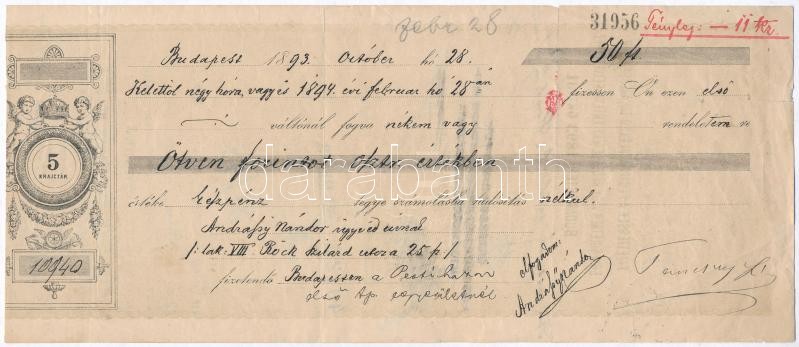 Febr 28
31956 Tényleg: – 11 kr
Budapest 1893. October hó 28. 50 ft
Kelettől négy hóra, vagyis 1894. évi februar ho 28 án fizessen Ön ezen első
váltónál fogva nékem vagy rendeletemre
Ötven forintot osztr. értékben
5
KRAJCZÁR
darabanth
értéke készpénz tegye számolásba tudósítás nélkül.
Andrássy Nándor ügyvéd úrnak
/: lak: VIII Röck Szilárd utcza 25 :/
10940
fizetendő Budapesten a Pesti hazai
első tp. egyesületnél
Elfogadom:
Andrássy Nándor